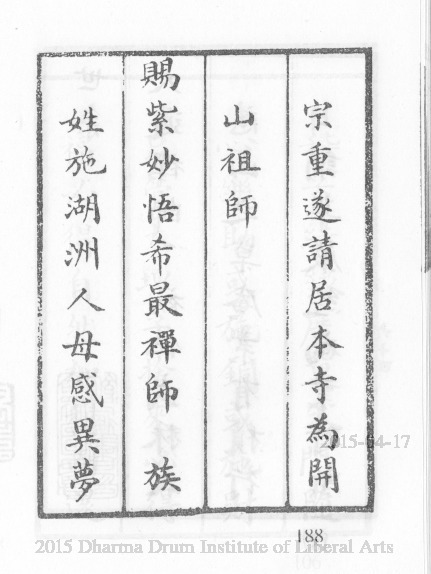 宗重遂請居本寺為開
山祖師
賜紫妙悟希最禪師 族
姓施湖洲人母感異夢
188
2015-04-17
2015 Dharma Drum Institute of Liberal Arts